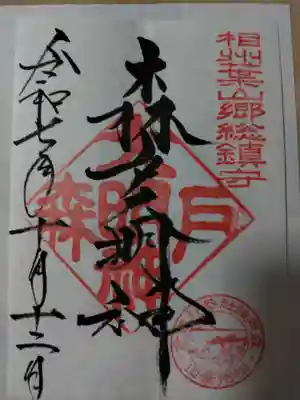 相州葉山郷総鎮守
森戸明神
森戸大明神
令和七年十月十二日